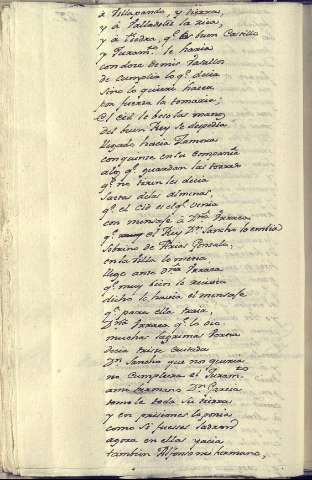 à Villalpando, y tierra,
y à Valladolid la rica,
y à Tiedra, qᵉ es buen Castillo
y Juramᵗᵒ le haria
con doce de mis Vasallos
de cumplir lo qᵉ decia
sino lo quiere hacer
por fuerza la tomaria;
El Cid le besó las manos,
del buen Rey se despedia
llegado hacia Zamora
con quince en su Compañia
a los qᵉ guardan las torres
qᵉ no tiren les decia
saetas de las almenas,
qᵉ el Cid es el qᵉ venia
con mensaje à Dᵃ Urraca
qᵉ el Rey Dⁿ Sancho lo embia
sobrino de Arias Gonzalo,
en la Villa lo metia
llegó ante Dᵃ Urraca
qᵉ muy bien le recivia
dicho le havia el mensaje
qᵉ para ella traia,
Dᵃ Urraca qᵉ lo oió
muchas lagrimas vertia
decia triste cuitada
Dⁿ Sancho que me queria
no cumpliera el Juramᵗᵒ
a mi hermano Dⁿ Garcia
tomole toda su tierra
y en prisiones lo ponia
como si fuesse ladron
agora en ellas yacia
tambien Alfonso mi hermano,